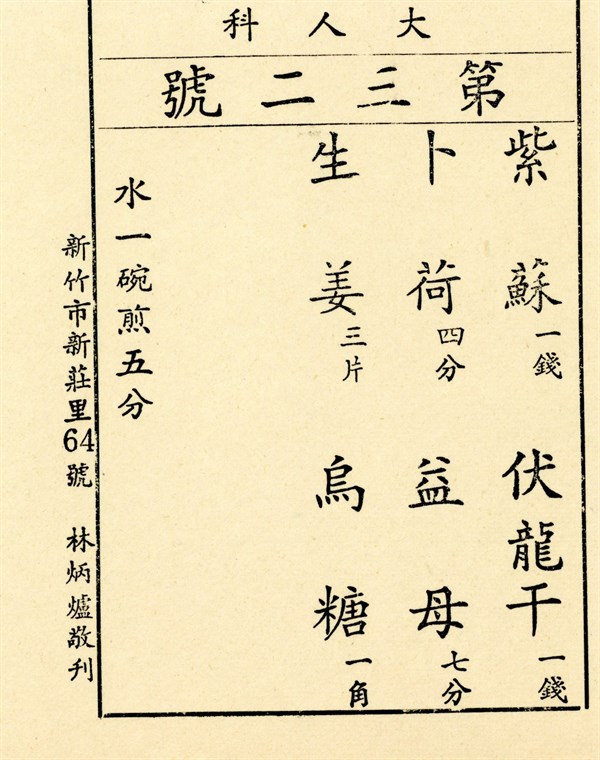 大人科
第三二號
紫蘇一錢 伏龍干一錢
卜荷四分 益母七分
生姜三片 烏糖一角
水一碗煎五分
新竹市新莊里64號 林炳爐敬刋